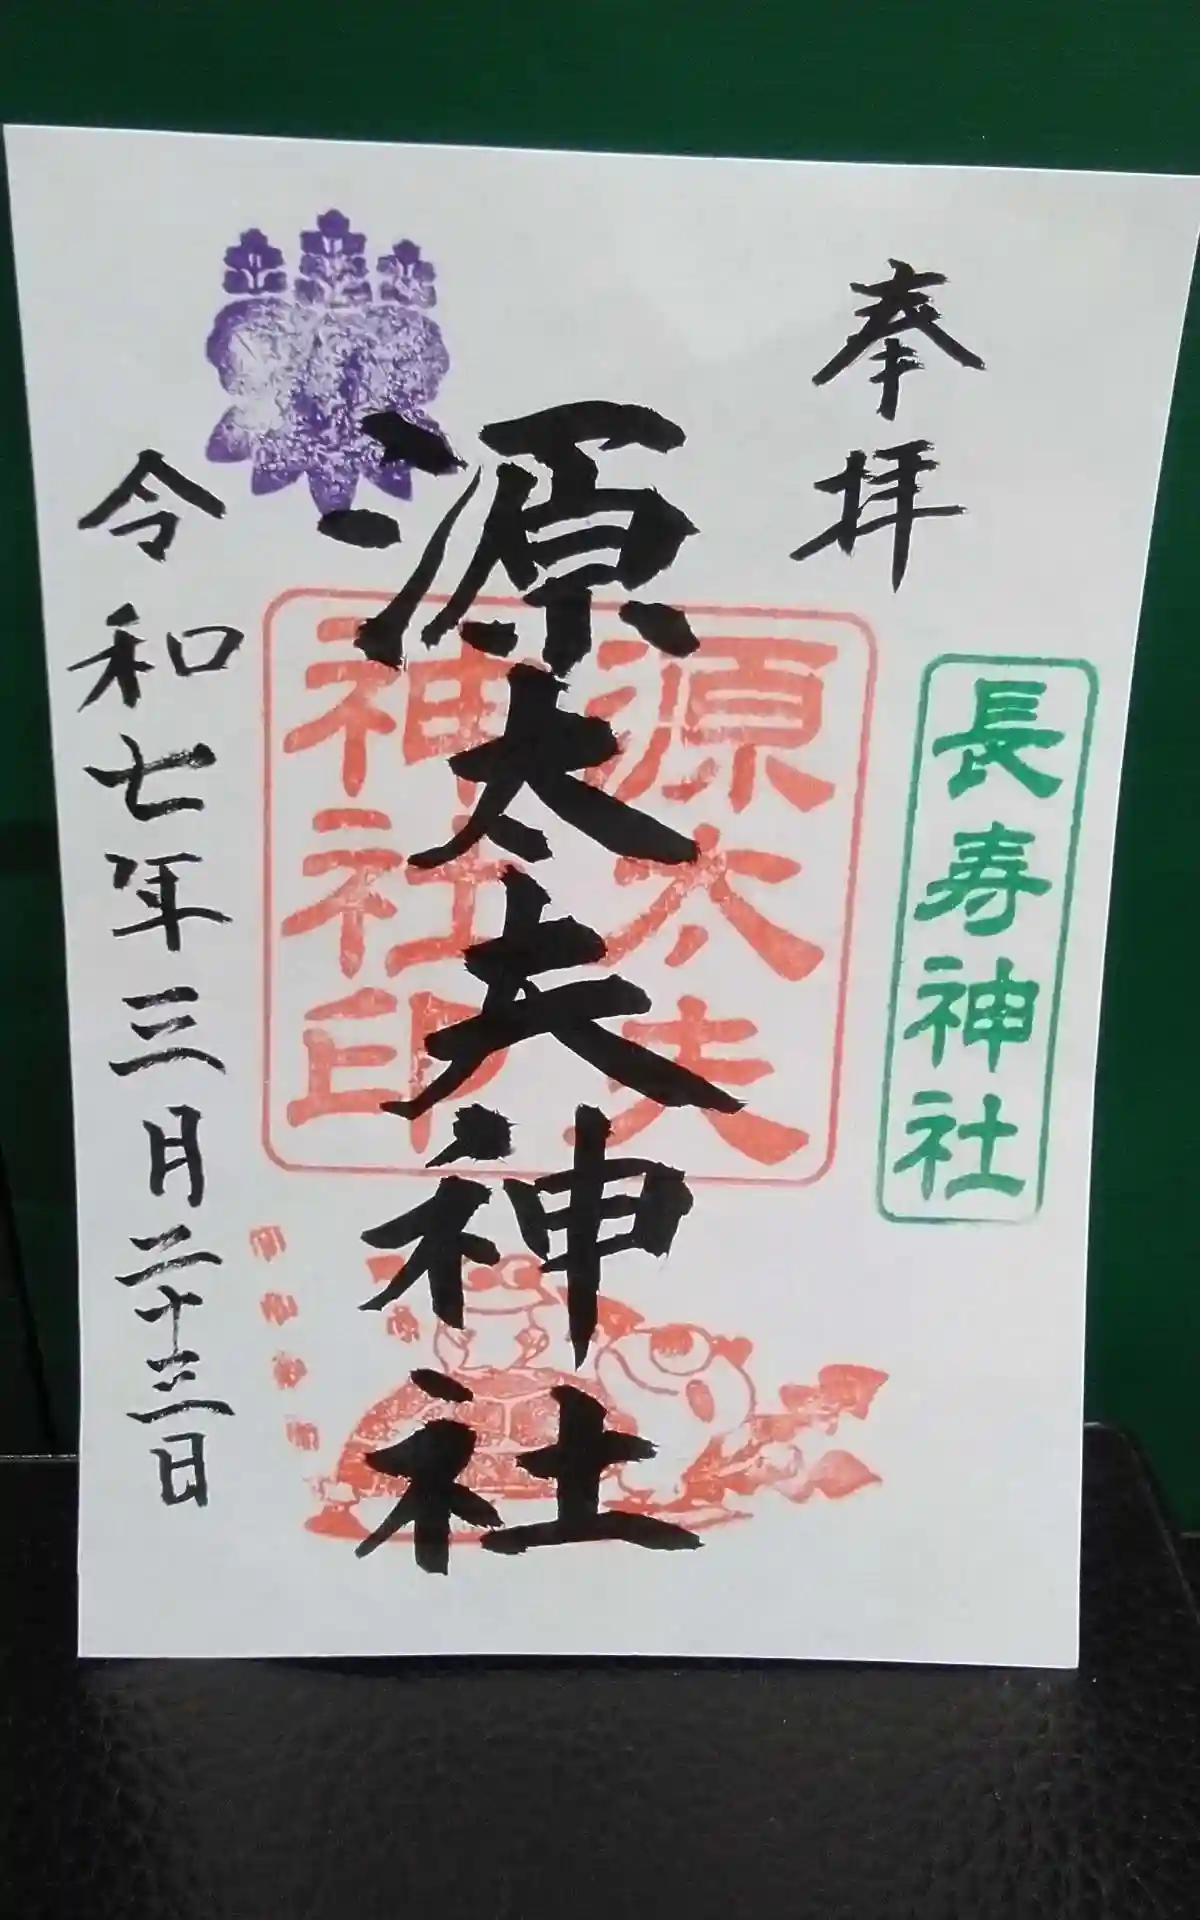 奉拝
長寿神社
源太夫
神社印
源太夫神社
令和七年三月二十三日